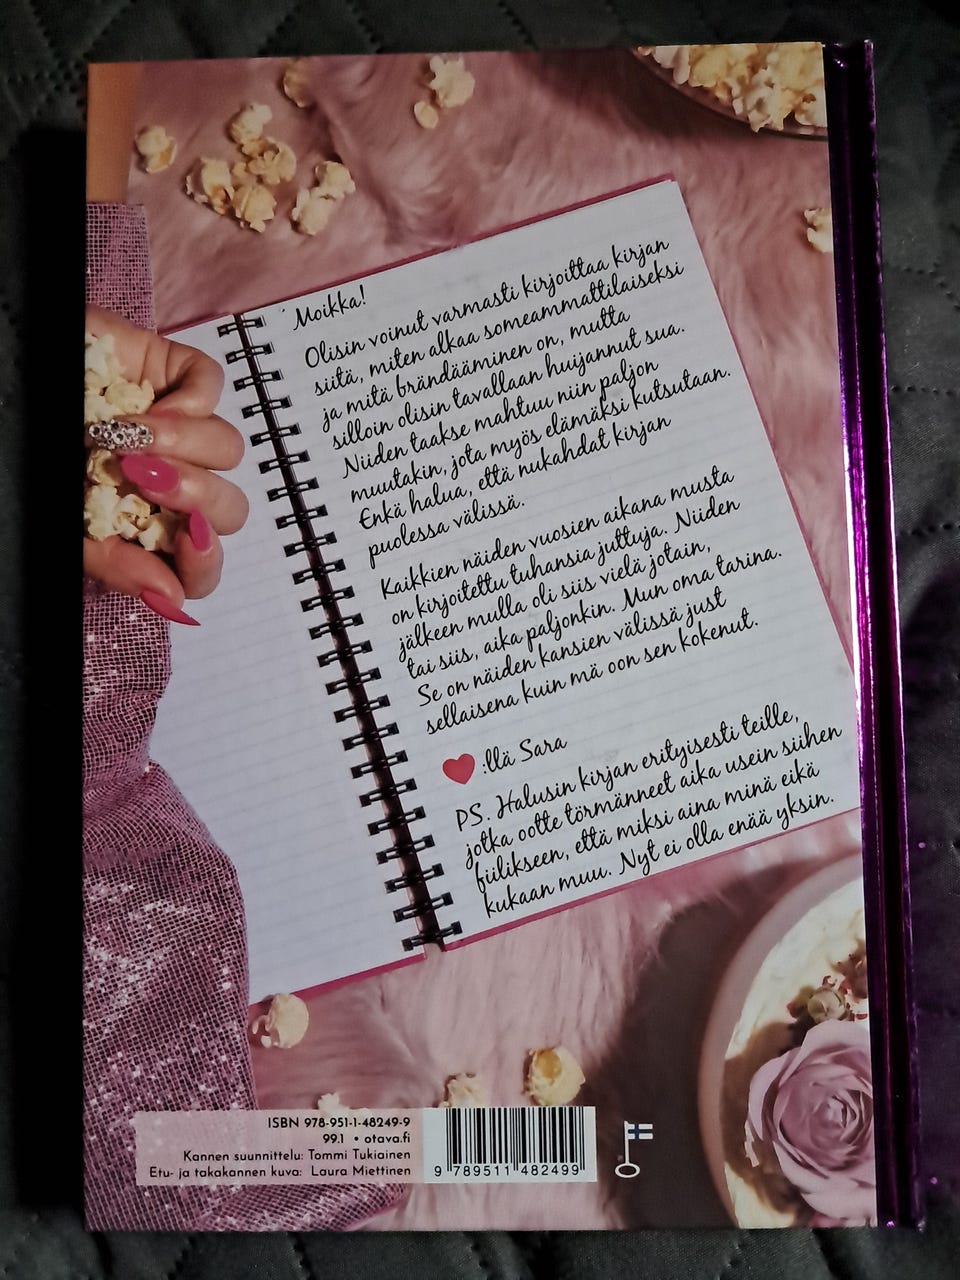 Moikka!
Olisin voinut varmasti kirjoittaa kirjan
siitä, miten alkaa someammattilaiseksi
ja mitä brändääminen on, mutta
silloin olisin tavallaan huijannut sua.
Niiden taakse mahtuu niin paljon
muutakin, jota myös elämäksi kutsutaan.
Enkä halua, että nukahdat kirjan
puolessa välissä.
Kaikkien näiden vuosien aikana musta
on kirjoitettu tuhansia juttuja. Niiden
jälkeen mulla oli siis vielä jotain,
tai siis, aika paljonkin. Mun oma tarina.
Se on näiden kansien välissä just
sellaisena kuin mä oon sen kokenut.
❤:llä Sara
PS. Halusin kirjan erityisesti teille,
jotka ootte törmänneet aika usein siihen
fiilikseen, että miksi aina minä eikä
kukaan muu. Nyt ei olla enää yksin.
ISBN 978-951-1-48249-9
99.1 • otava.fi
Kannen suunnittelu: Tommi Tukiainen
Etu- ja takakannen kuva: Laura Miettinen
9 789511 482499